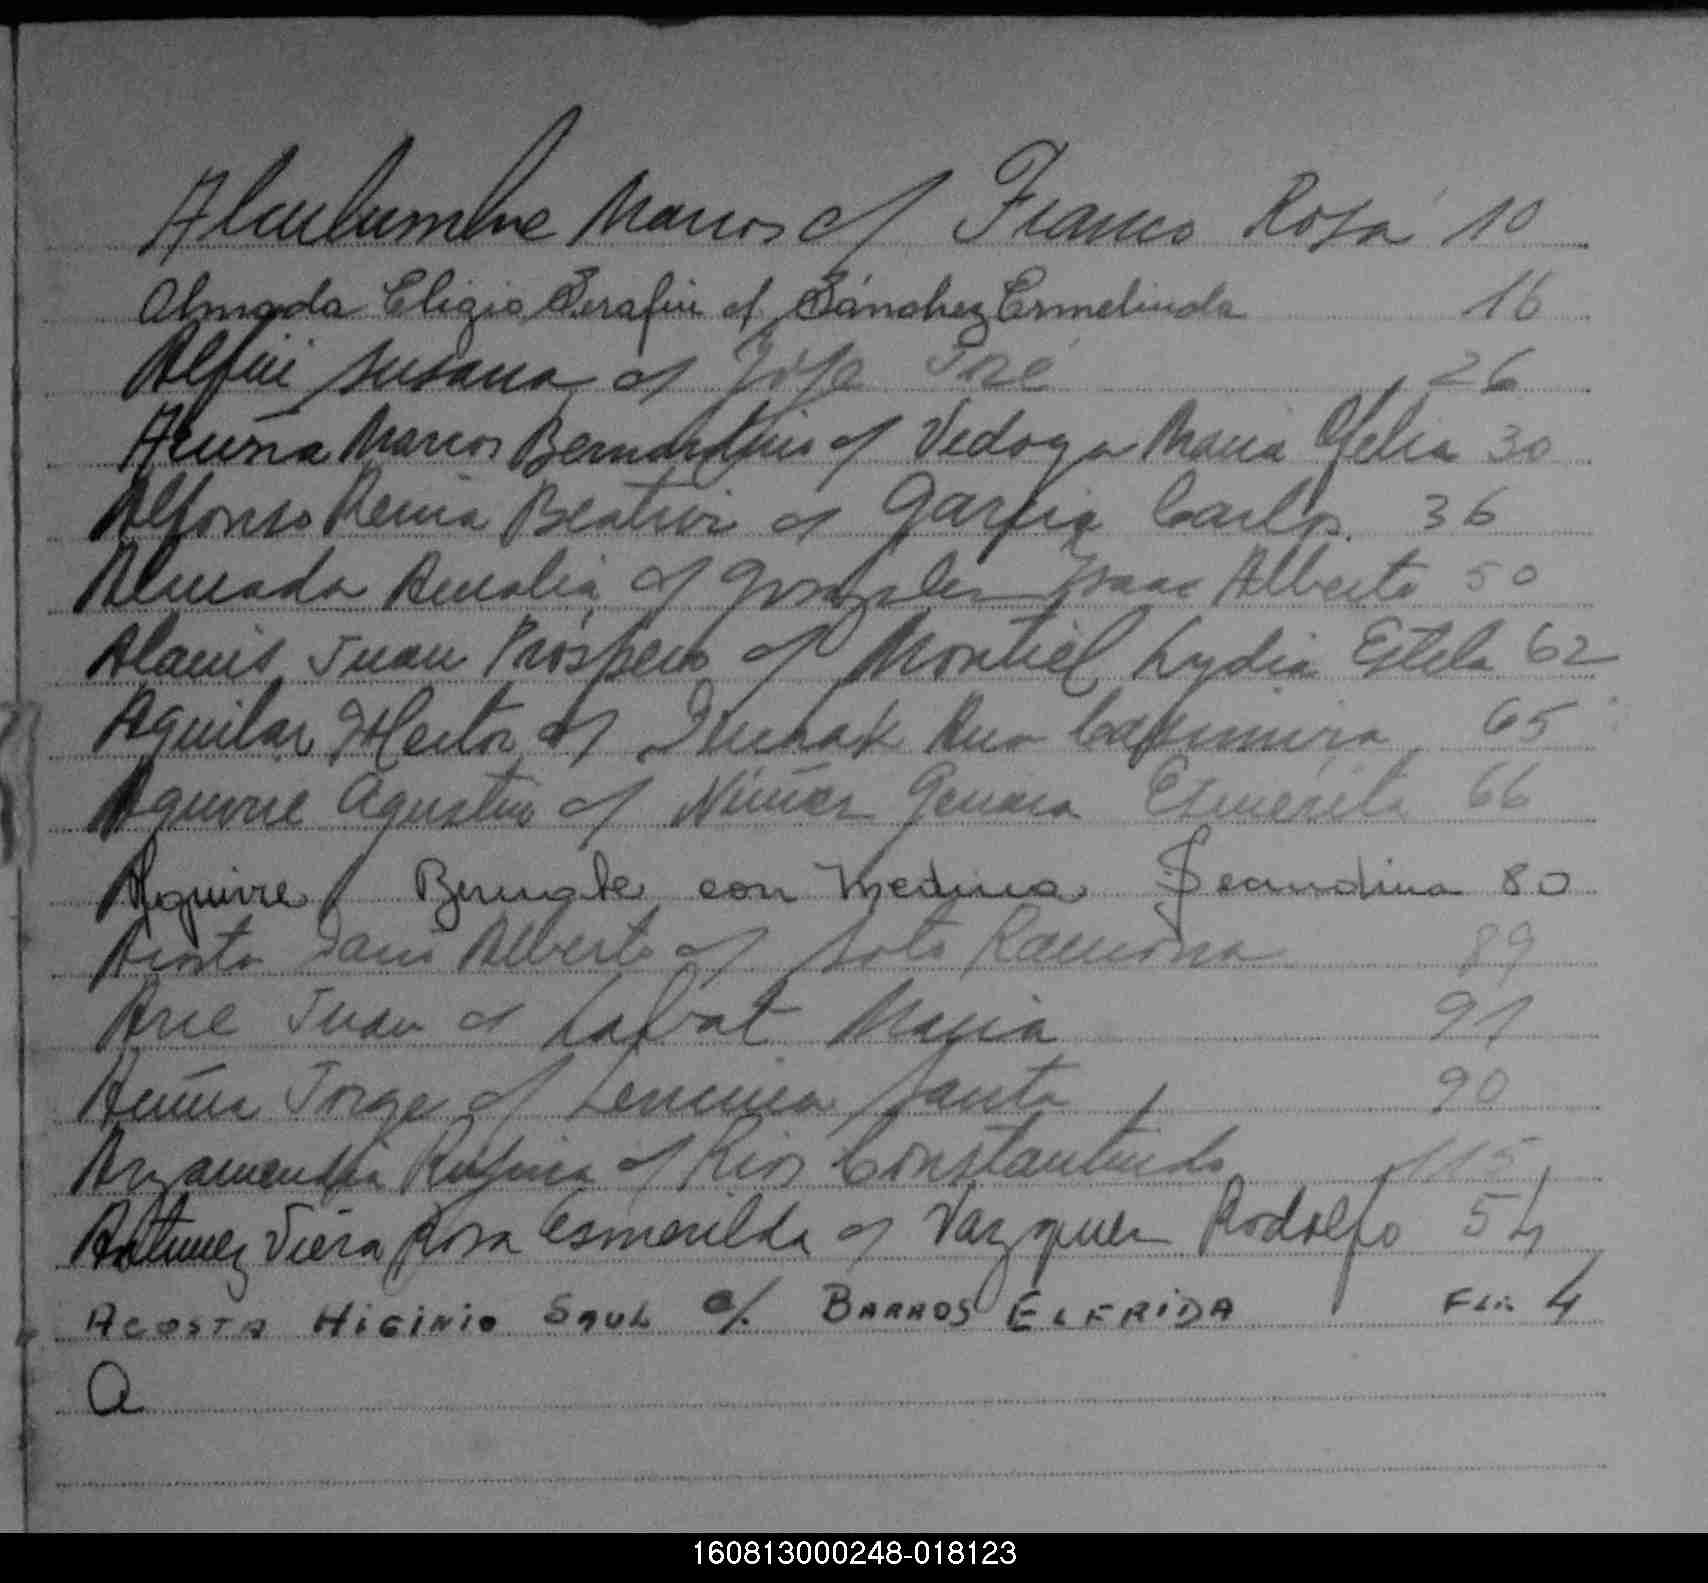 Marcos c/ Franco Rosa 10
Almada Eligio Serafin c/ Sánchez Ermelinda 16
Alfini Susana c/ José 26
Acuña Marcos Bernardino c/ Vedoya Maria Ofelia 30
Alfonso Beatriz c/ Garcia Carlos 36
Almada Amalia c/ Gonzalez Isaac Alberto 50
Alanis Juan Próspero c/ Montiel Lydia Estela 62
Aguilar Hector c/ Ana Casimira 65
Aguirre Agustin c/ Núñez Genara Esmerita 66
Aguirre con Medina Secundina 80
Acosta Alberto c/ Soto Ramona 89
Arce Juan c/ Labat Maria 91
Acuña Jorge c/ Lencina Santa 90
Arzamendia Rufina c/ Rios Constantino 115
Antunez Viera Rosa Esmerilda c/ Vazquez Rodolfo 54
ACOSTA HIGINIO SAUL c/. BARROS ELFRIDA 4
A
160813000248-018123